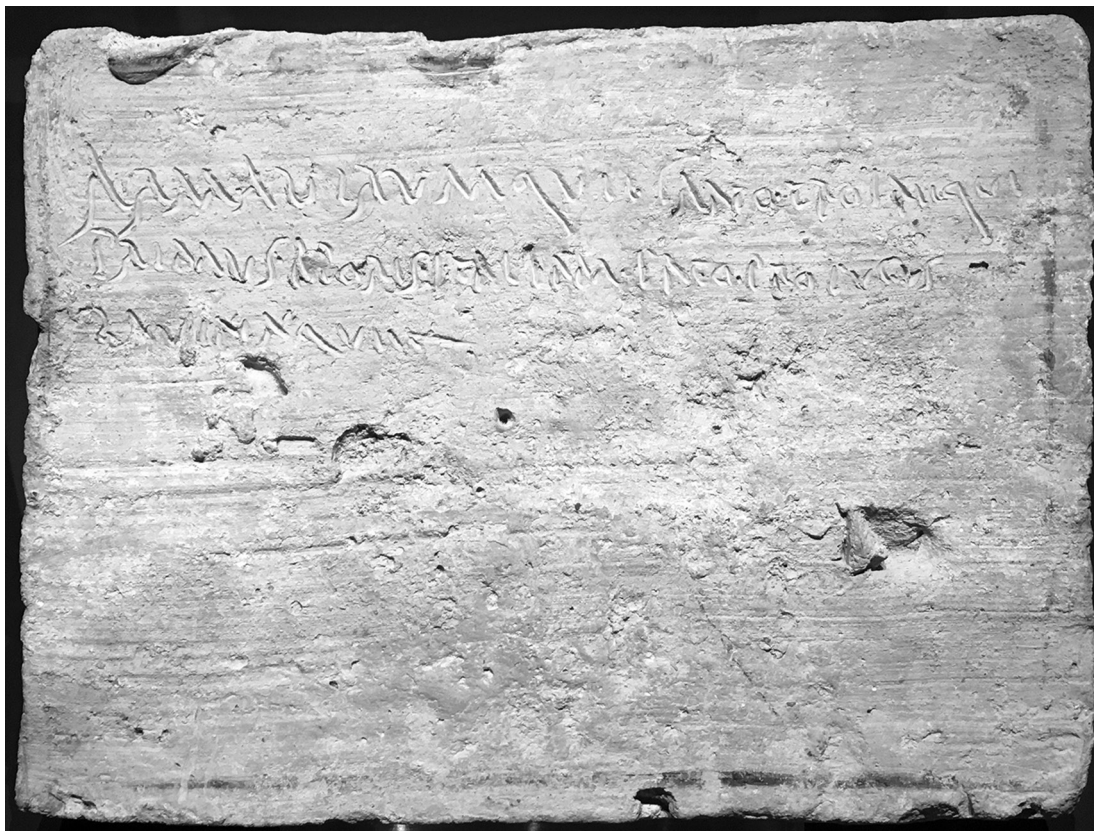 arma uirumque cano troiae qui
primus ab oris italiam fato profugus